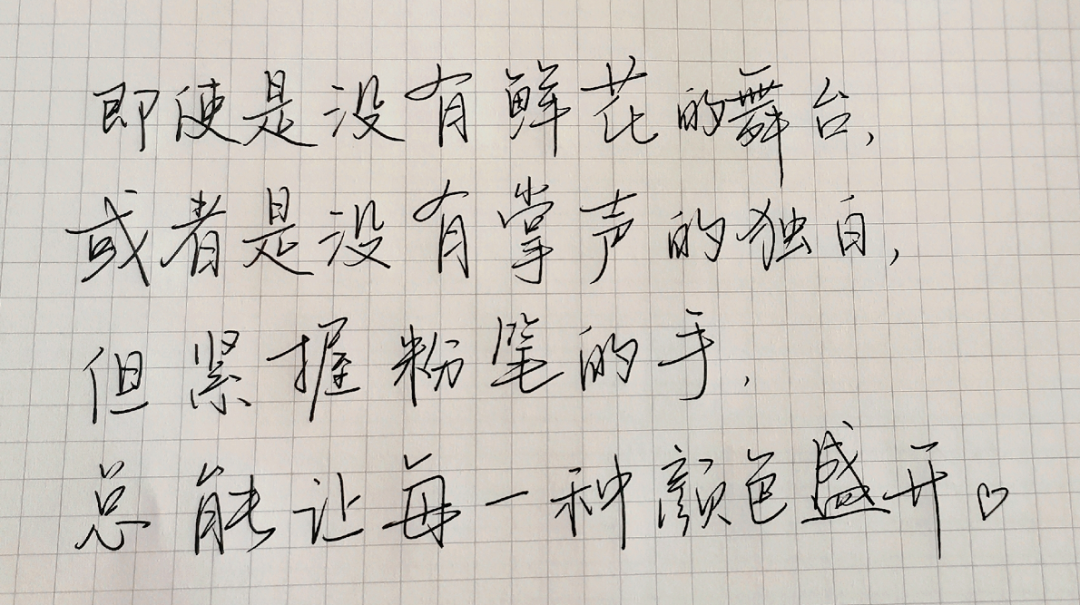 即使是没有鲜花的舞台,
或者是没有掌声的独白,
但紧握粉笔的手,
总能让每一种颜色盛开。♡